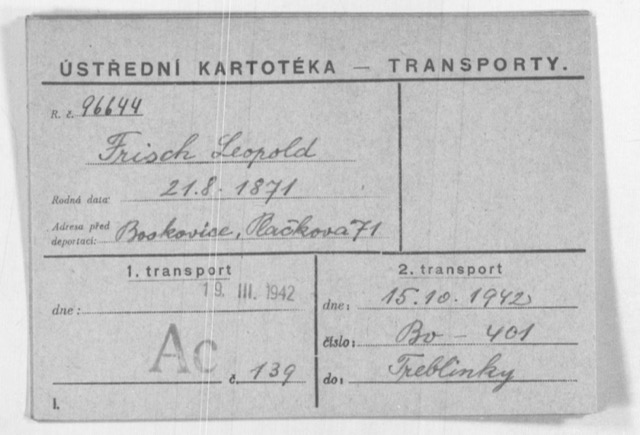 ÚSTŘEDNÍ KARTOTÉKA — TRANSPORTY.
R. č. 96644
Frisch Leopold
Rodná data: 21.8. 1871
Adresa před deportací: Boskovice, Plačkova 71
1. transport
dne: 19. III. 1942
Ac
č. 139
2. transport
dne: 15.10.1942
číslo: Bv — 401
do: Treblinky
I.